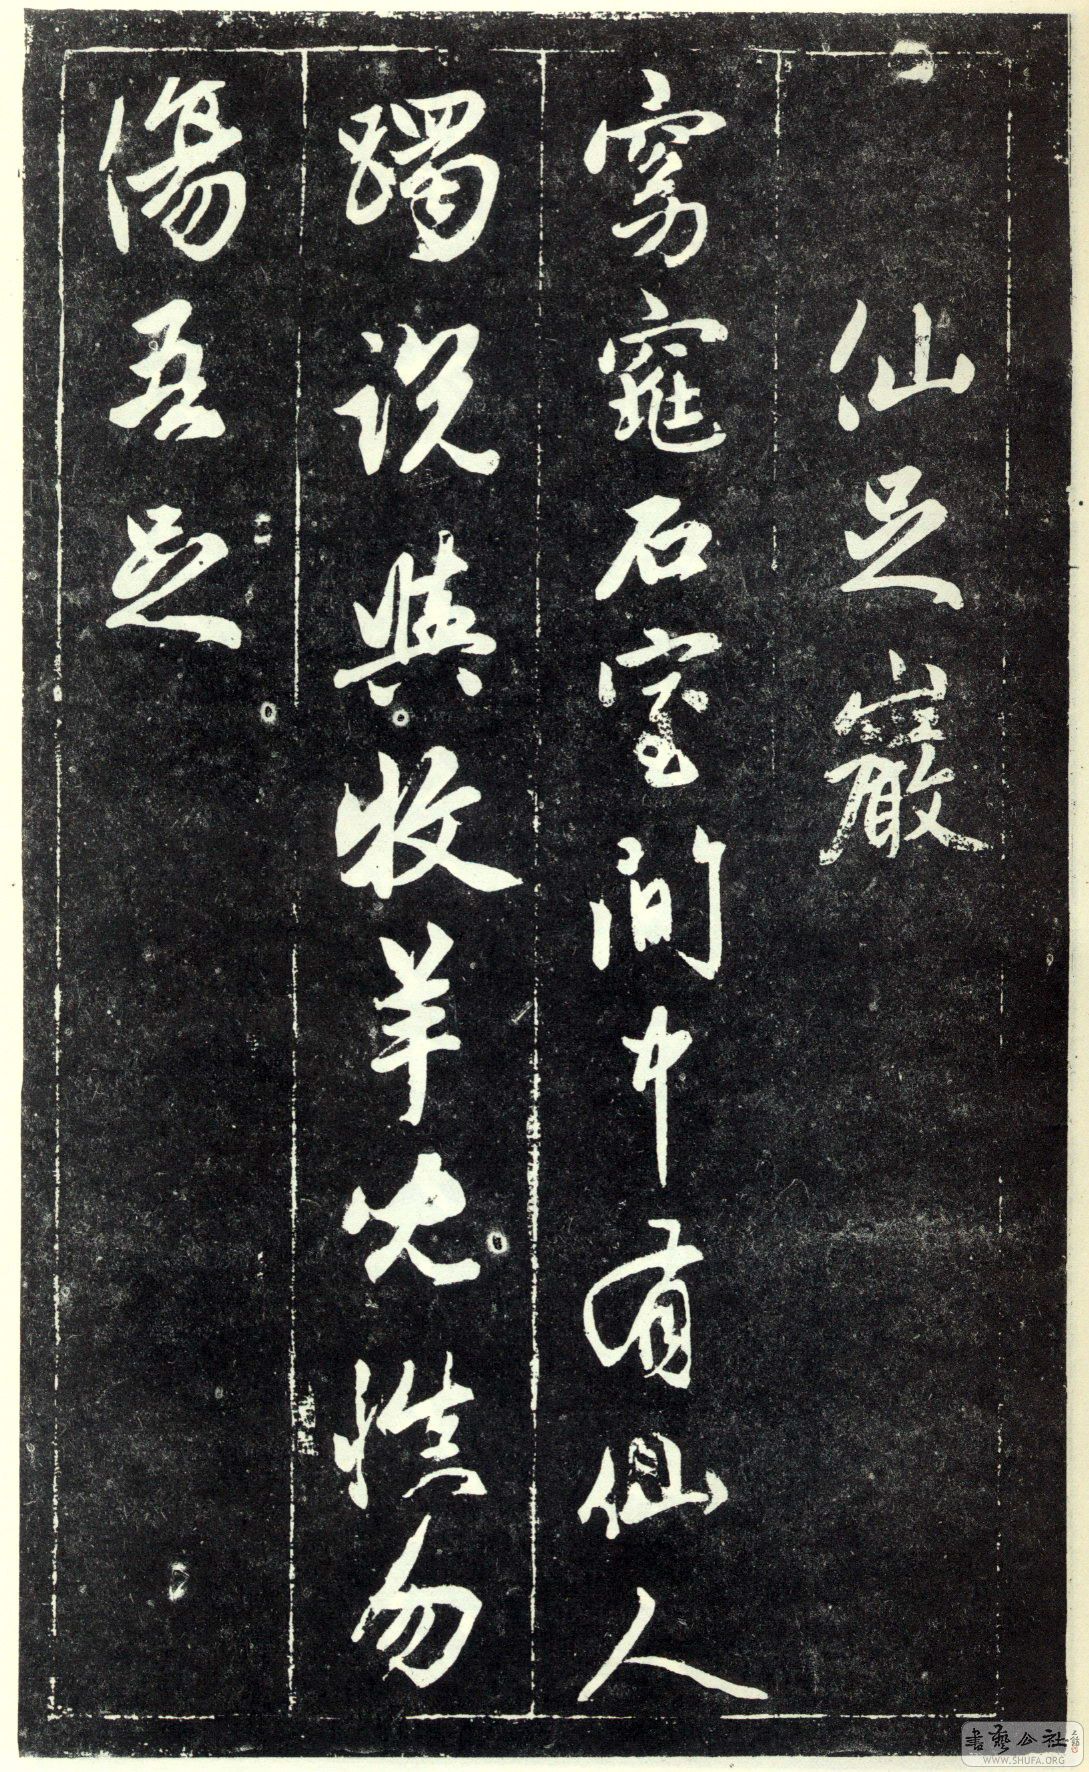 仙足巖
窈窕石室間中有仙人
躅説與牧羊兒慎勿
傷吾足
書藝公社
WWW.SHUFA.ORG